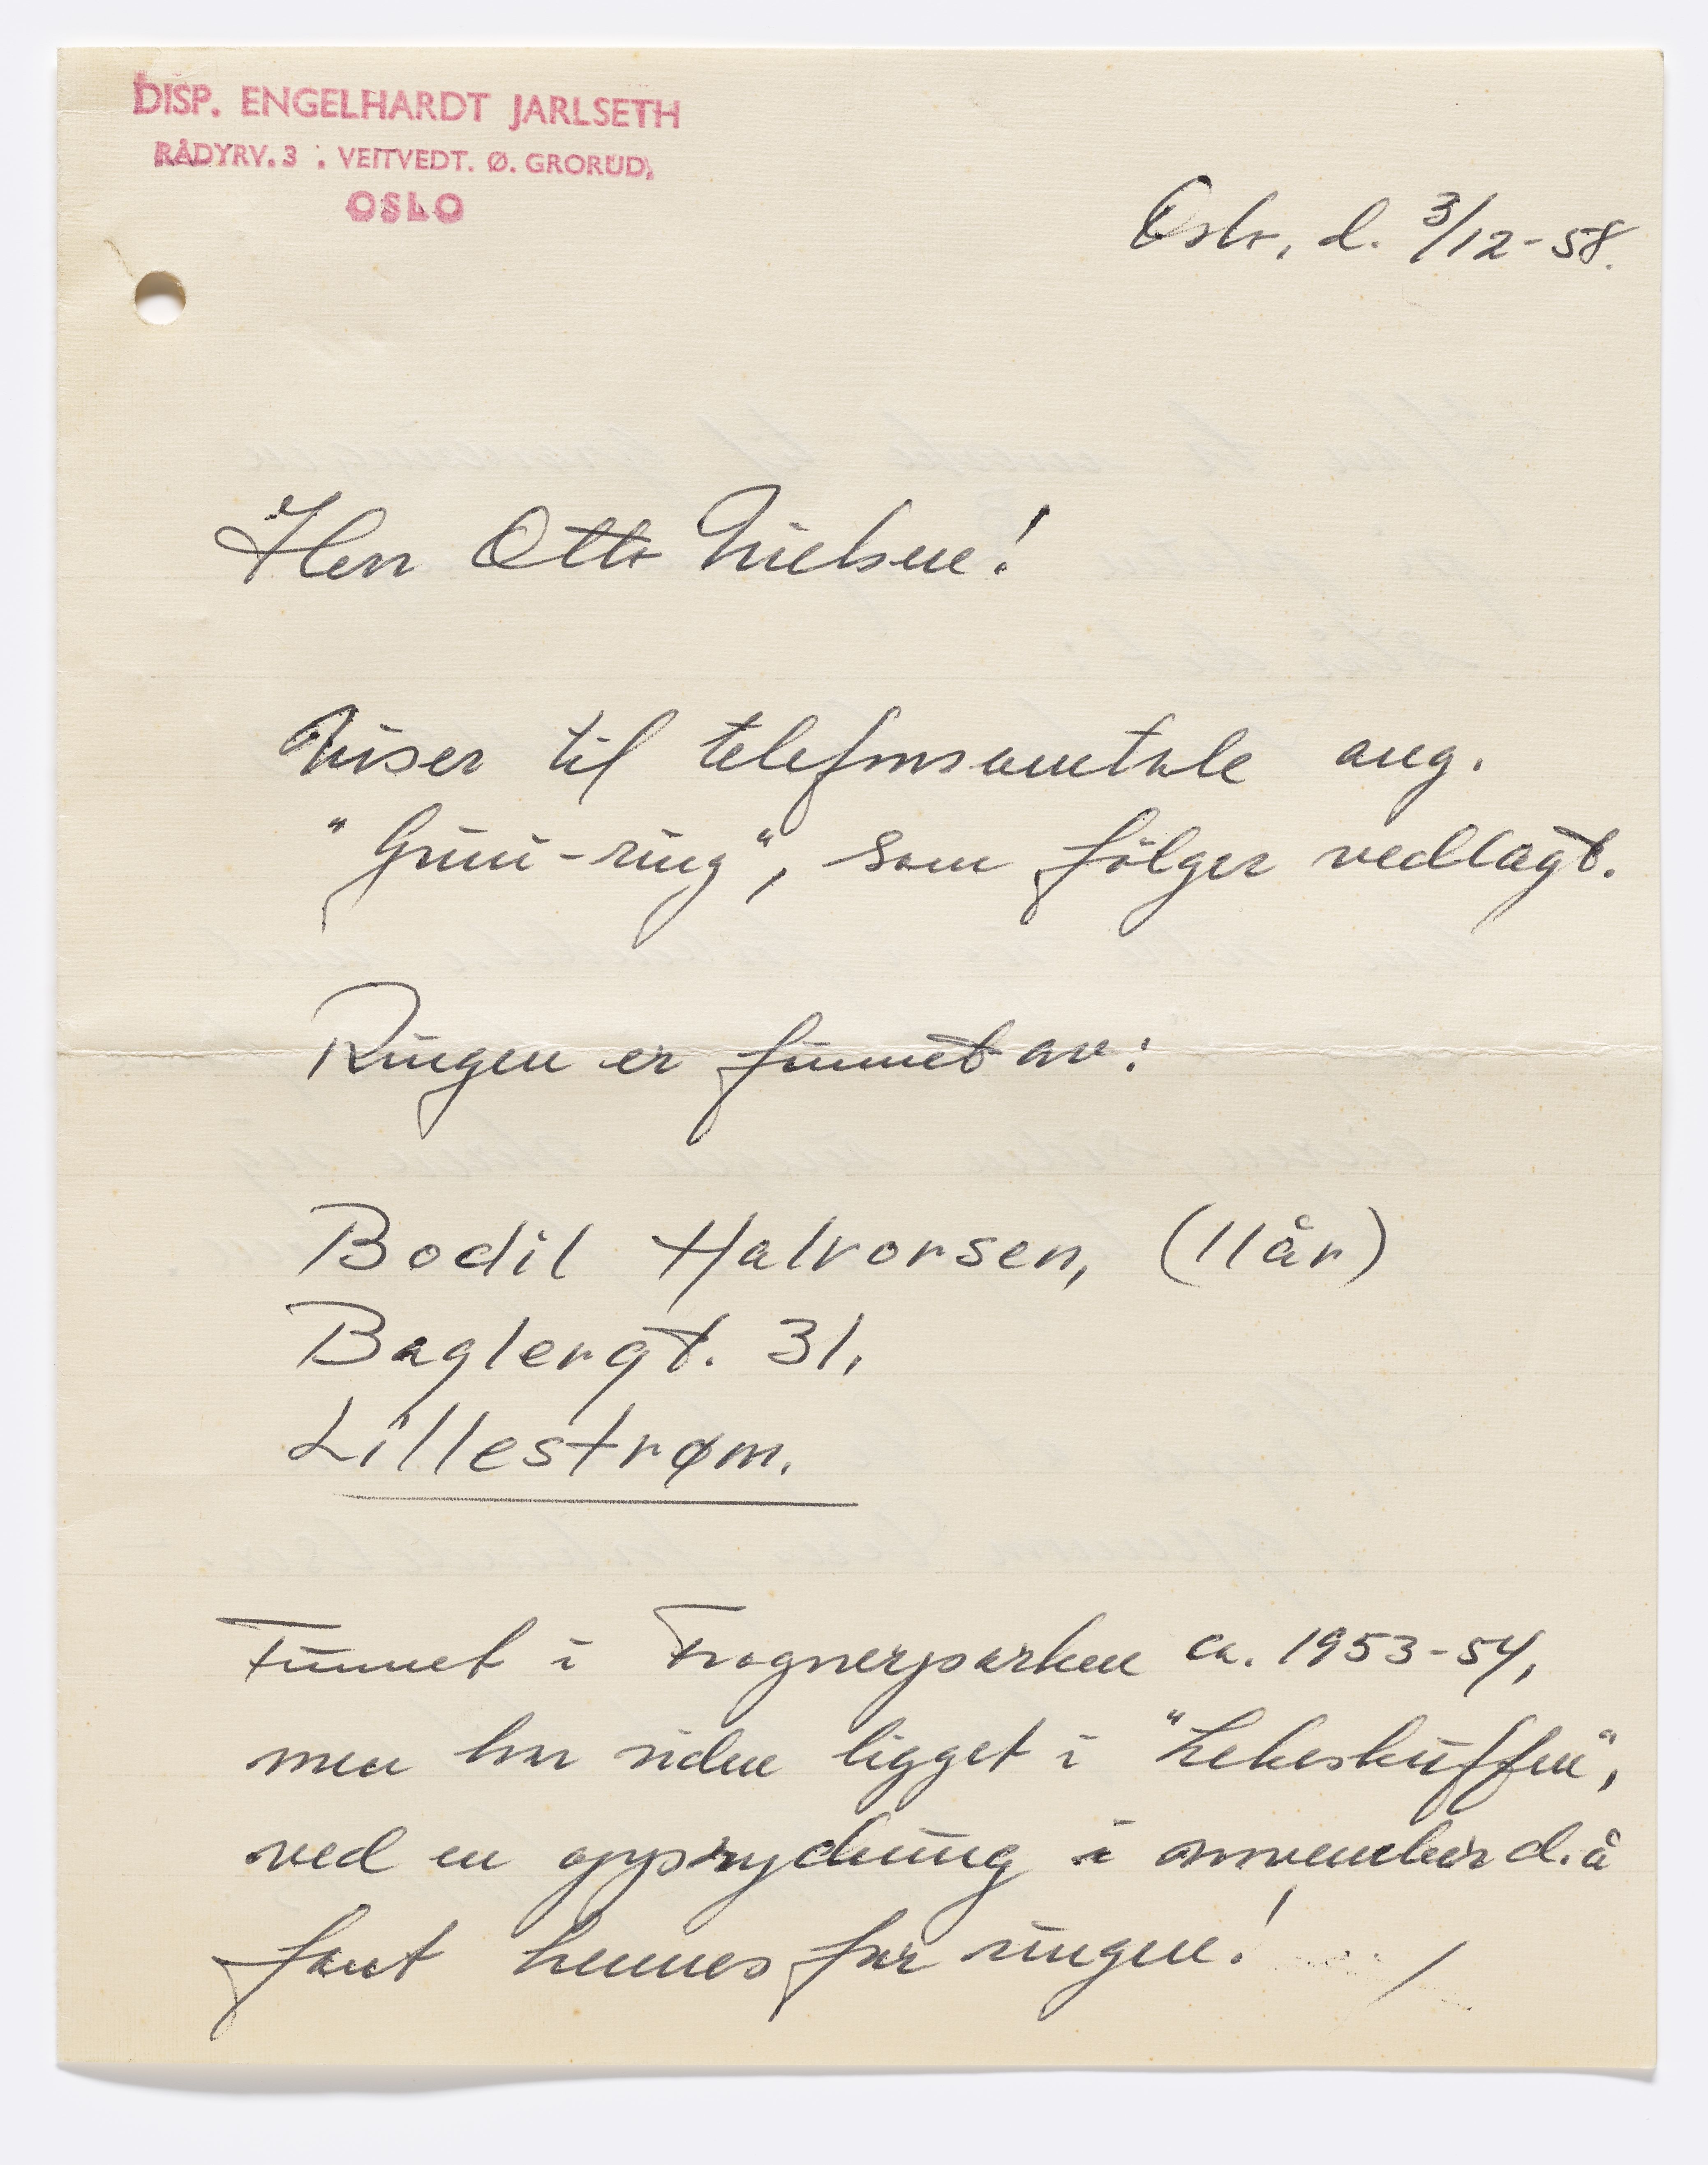 DISP. ENGELHARDT JARLSETH
RÅDYRV. 3 . VEITVEDT. Ø. GRORUD,
OSLO
Oslo, d. 3/12-58.
Herr Otto Nielsen!
Viser til telefonsamtale ang.
"Grini-ring", som følger vedlagt.
Ringen er funnet av:
Bodil Halvorsen, (11 år)
Baglergt. 31,
Lillestrøm.
Funnet i Frognerparken ca. 1953-54,
men har siden ligget i "Lekeskuffen",
ved en opprydning i november d.å
fant hennes far ringen! /